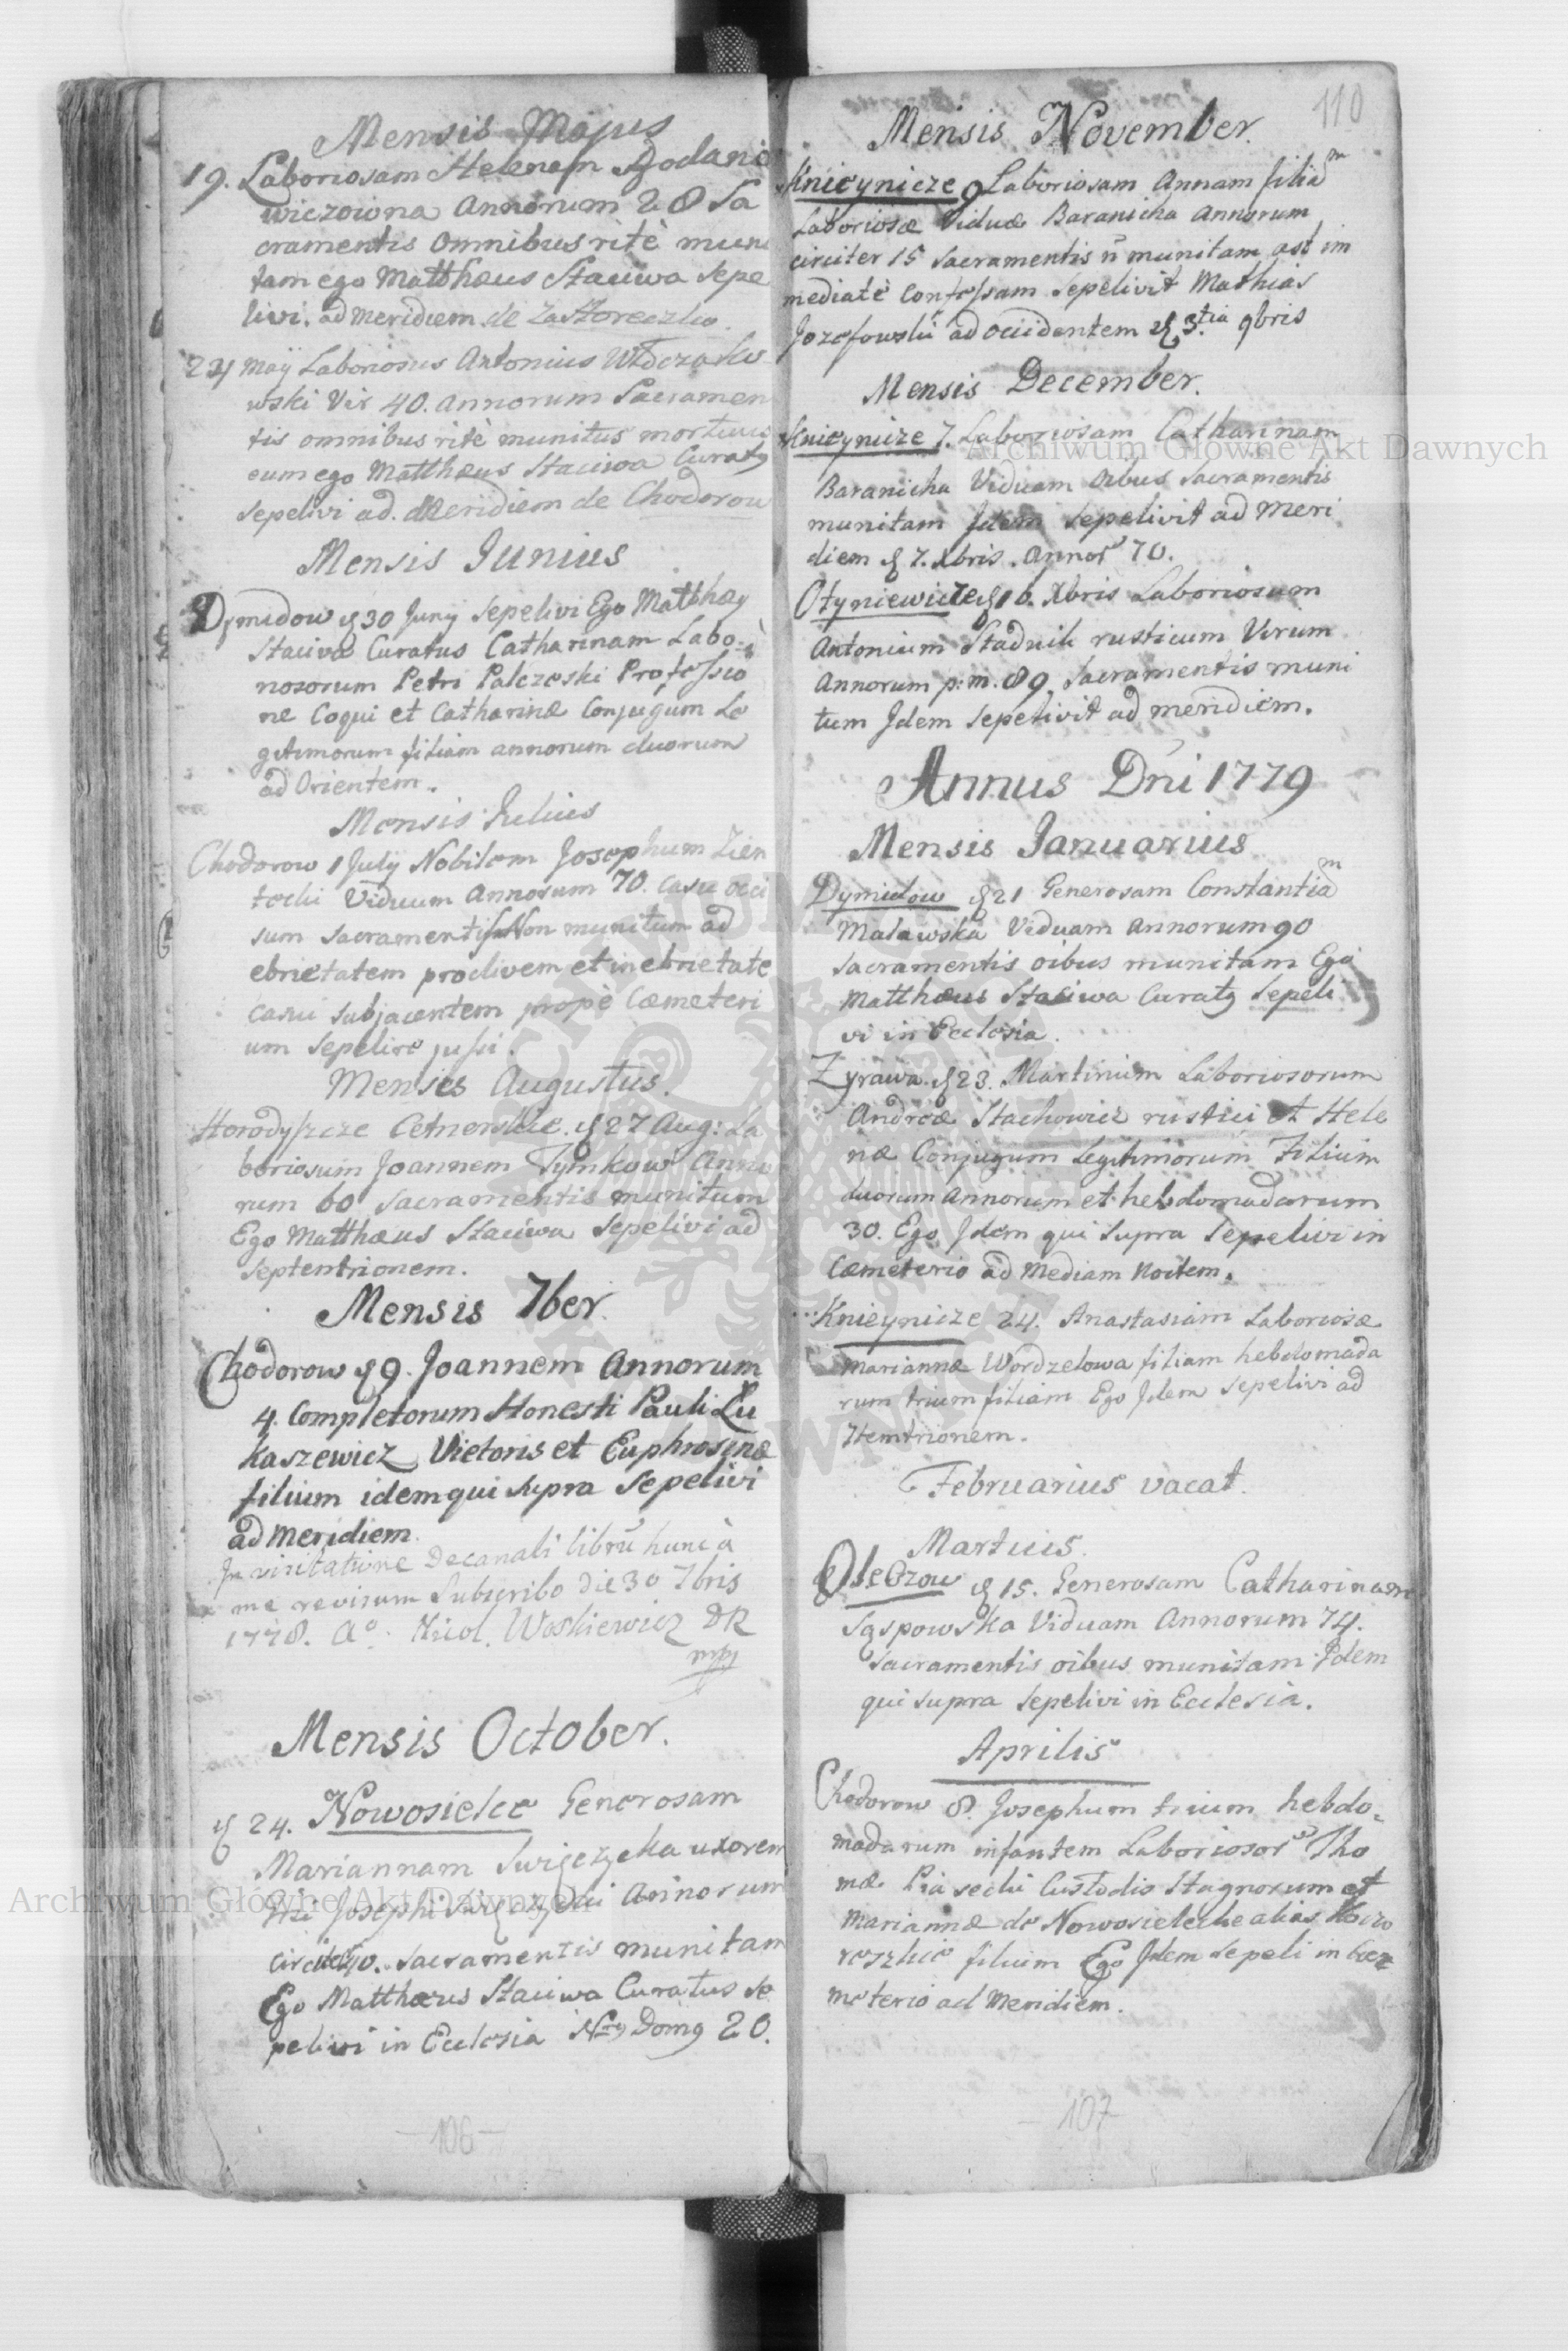 Mensis Majus
19. Laboriosam Helenam
wiczowna Annorum 28 Sa
cramentis omnibus ritè muni
tam ego Matthæus Staciwa sepe
livi. ad meridiem de Zastoreczko.
24 Maÿ Laboriosus Antonius
wski Vir 40. annorum Sacramen
tis omnibus ritè munitus mortuus
eum ego Matthæus Staciwa Curatg
sepelivi ad. Meridiem de Chodorow
Mensis Junius
Dymidow ej 30 Juny sepelivi Ego Matthæg
Staciwa Curatus Catharinam Labo-
riosorum Petri Palczeski Professio
ne Coqui et Catharinæ Conjugum Le
gitimorum filiam annorum duorum
ad Orientem.
Mensis Julius
Chodorow 1 July Nobilem Josephum Zien
tecki Viduum Annorum 70. casu occi
sum sacramentis Non munitum ad
ebrietatem proclivem et in ebrietate
casui subjacentem propè Cæmeteri
um sepelire jussi.
Mensis Augustus.
Horodyszcze Cetnerskie. ej 27 Aug: La
boriosum Joannem Tymkow Anno
rum 60 sacramentis munitum
Ego Matthæus Staciwa sepelivi ad
septentrionem.
Mensis 7ber.
Chodorow ej 9. Joannem Annorum
4. Completorum Honesti Pauli Łu
kaszewicz Vietoris et Euphrosinæ
filium idem qui supra sepelivi
ad meridiem.
In visitatione Decanali librũ hunc à
me revisum Subscribo die 30 7bris
1778. Aº. Nicol. Woskiewicz DR
mpp
Mensis October.
ej 24. Nowosielce Generosam
Mariannam Swiężycka uxorem
Gsi Josephi Swiężycki Annorum
circiter 40. sacramentis munitam
Ego Matthæus Staciwa Curatus se
pelivi in Ecclesia Nro Domg 20.
106
110
Mensis November.
Knieynicze 9 Laboriosam Annam filiaᵐ
Laboriosæ Viduæ Baranicha Annorum
circiter 15 sacramentis ñ munitam ast im
mediatè Confessam sepelivit Mathias
Jozefowski ad occidentem ej 3.tia 9bris
Mensis December.
Knieynicze 7. Laboriosam Catharinam
Baranicha Viduam oibus sacramentis
munitam Idem sepelivit ad meri
diem ej 7. Xbris. Annor 70.
Otyniewicze ej 16. Xbris Laboriosum
Antonium Stadnik rusticum Virum
Annorum p: m. 89 sacramentis muni
tum Idem sepelivit ad meridiem.
Annus Dni 1779
Mensis Januarius
Dymidow ej 21 Generosam Constantiaᵐ
Malawska Viduam Annorum 90
sacramentis oibus munitam Ego
Matthæus Staciwa Curatg sepeli
vi in Ecclesia.
Zyrawa. ej 23. Martinum Laboriosorum
Andreæ Stachowicz rustici et Hele
næ Conjugum Legitimorum Filium
duorum annorum et hebdomadarum
30. Ego Idem qui supra sepelivi in
Cæmeterio ad mediam Noctem.
Knieynicze 24. Anastasiam Laboriosæ
Mariannæ Wordzelowa filiam hebdomada
rum trium filiam Ego Idem sepelivi ad
7temtrionem.
Februarius vacat.
Martius.
Oleczow ej 15. Generosam Catharinam
Sąspowska Viduam Annorum 74.
sacramentis oibus munitam Idem
qui supra sepelivi in Ecclesia.
Aprilis
Chodorow 8. Josephum trium hebdo-
madarum infantem Laboriosor Tho
mæ Piasecki Custodis Stagnorum et
Mariannæ de Nowosielecke alias
filium Ego Idem sepeli in Cœ
meterio ad Meridiem.
107
Archiwum Główne Akt Dawnych
Archiwum Główne Akt Dawnych